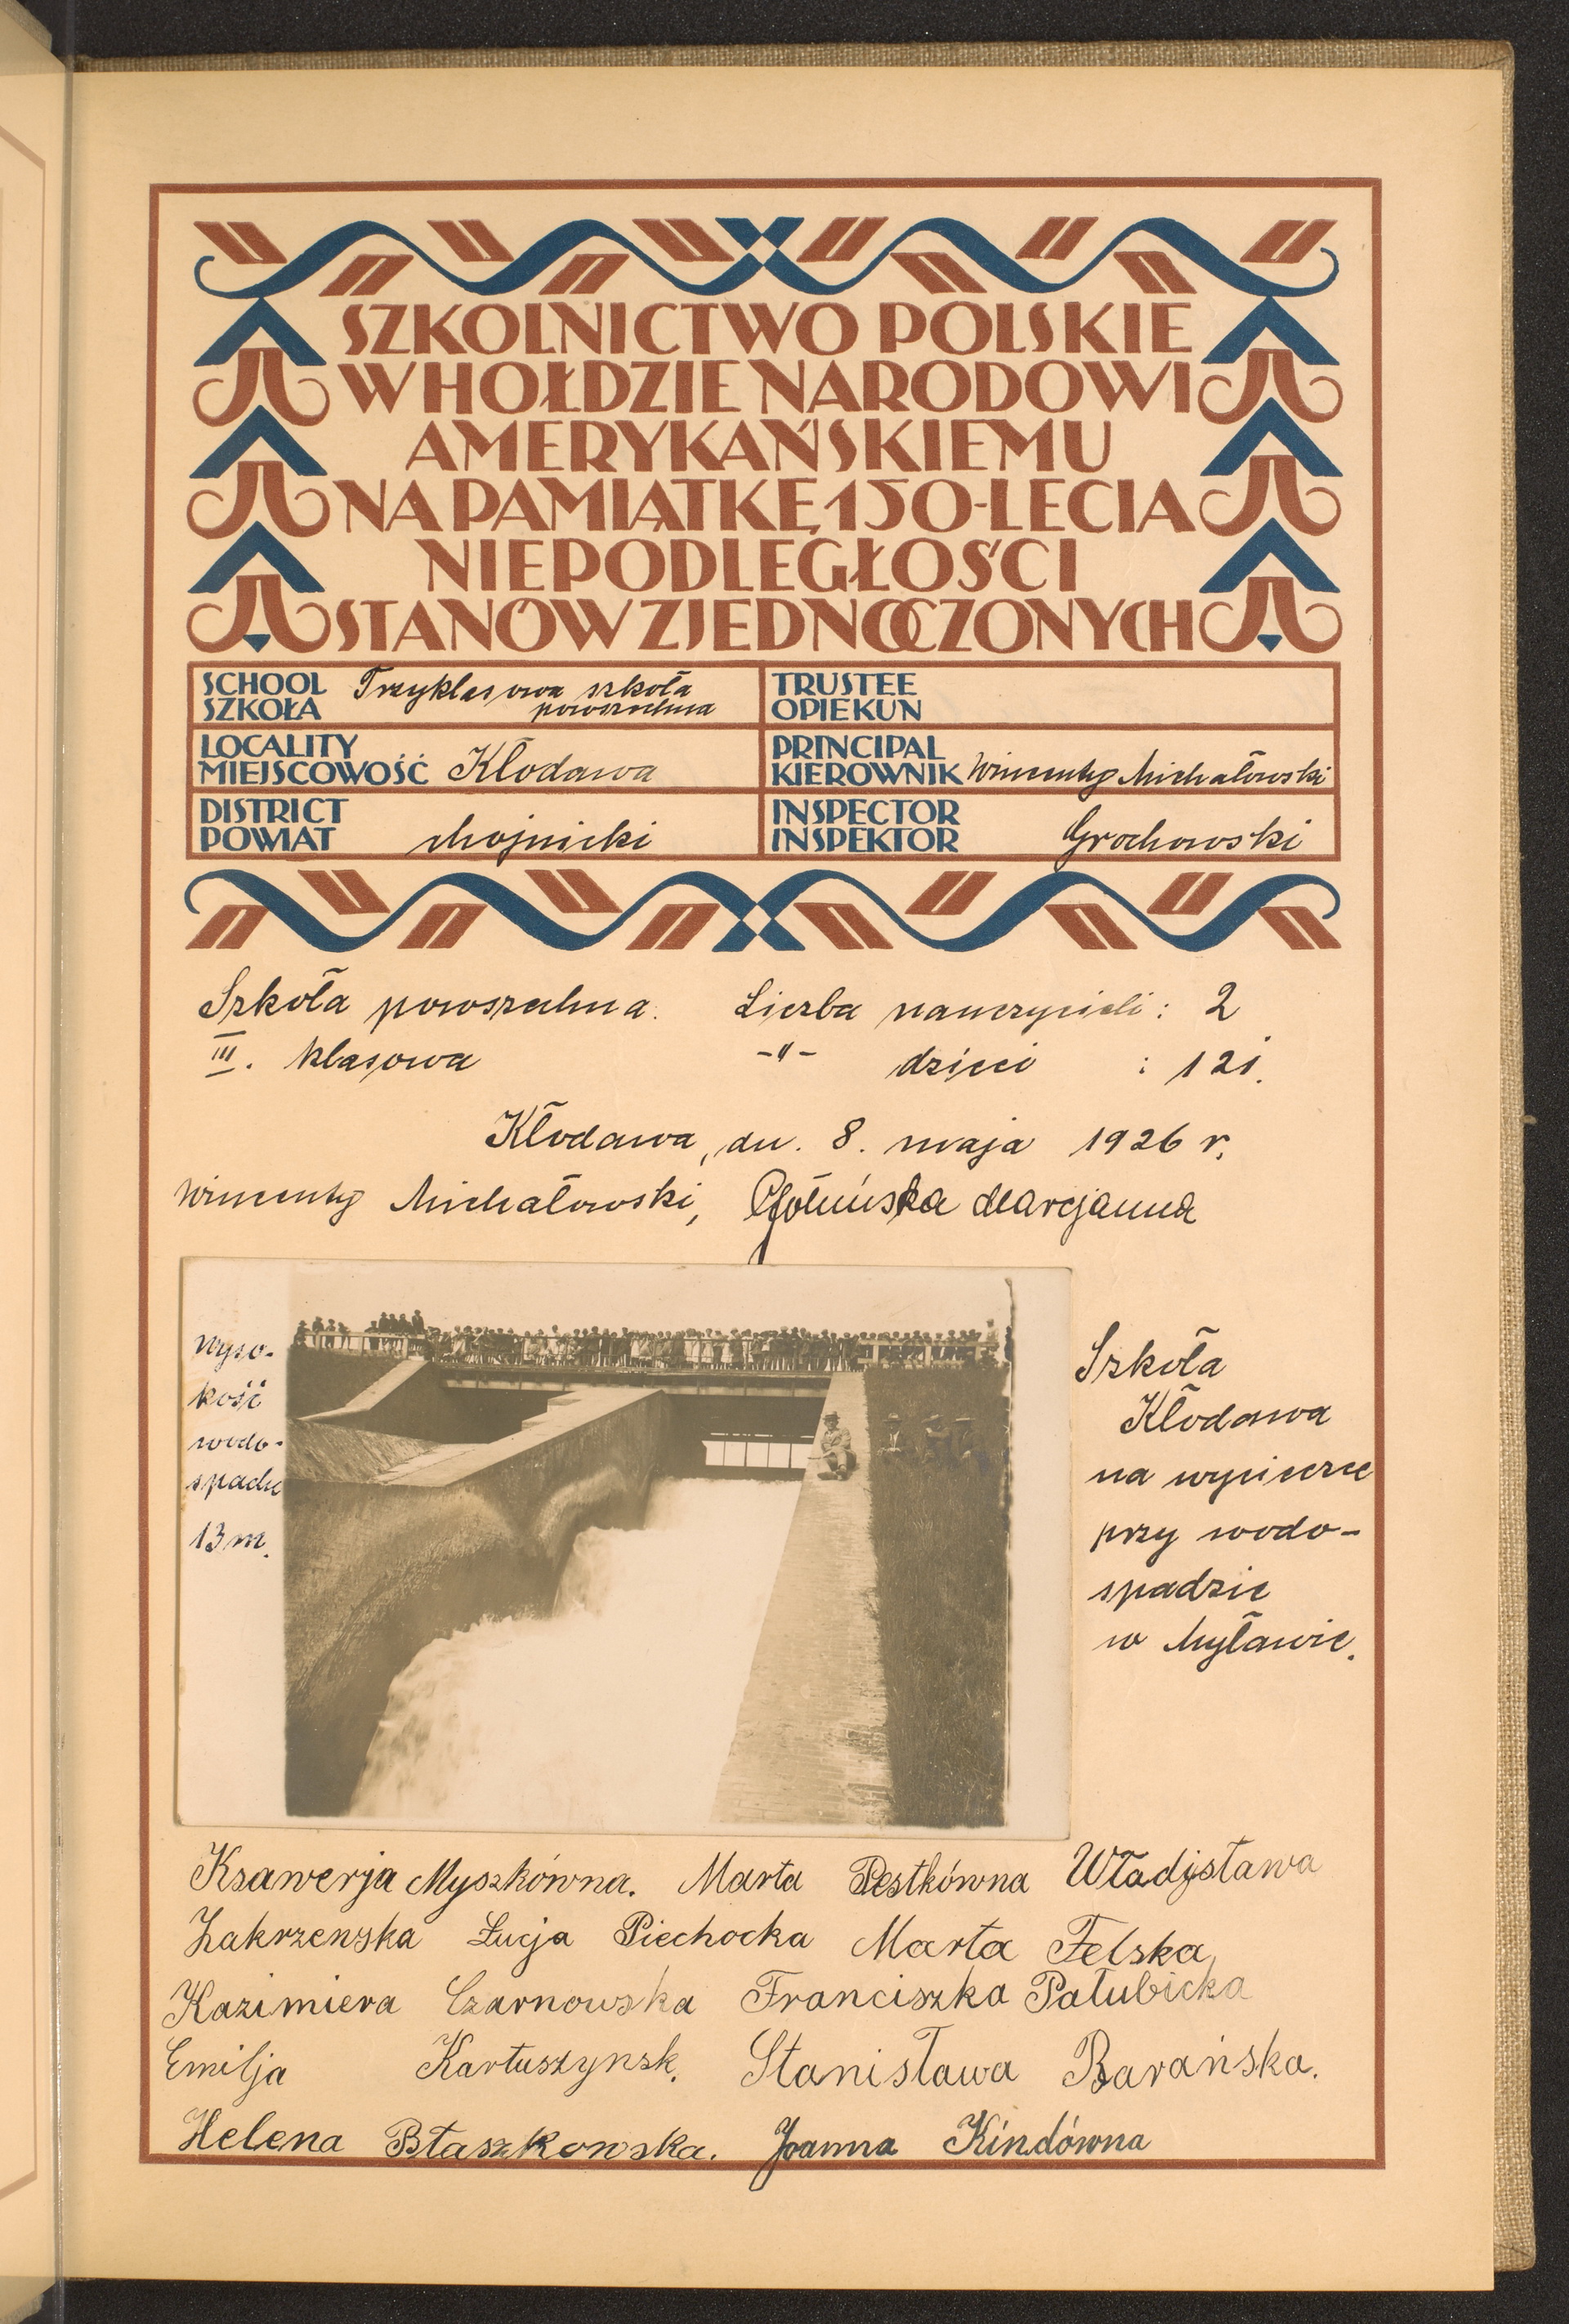 SZKOLNICTWO POLSKIE
W HOŁDZIE NARODOWI
AMERYKAŃSKIEMU
NA PAMIĄTKĘ 150-LECIA
NIEPODLEGŁOŚCI
STANÓW ZJEDNOCZONYCH
SCHOOL
SZKOŁA
Trzyklasowa szkoła
powszechna
TRUSTEE
OPIEKUN
LOCALITY
MIEJSCOWOŚĆ Kłodawa
PRINCIPAL
KIEROWNIK Wincenty Michałowski
DISTRICT
POWIAT chojnicki
INSPECTOR
INSPEKTOR Grochowski
Szkoła powszechna. Liczba nauczycieli: 2
III. klasowa -"- dzieci : 121.
Kłodawa, dn. 8. maja 1926 r.
Wincenty Michałowski, Marcjanna
Wyso-
kość
wodo-
spadu
13 m.
Szkoła
Kłodawa
na wycieczce
przy wodo-
spadzie
w Myławie.
Ksawerja Myszkówna. Marta Pestkówna Władysława
Zakrzewska Łucja Piechocka Marta Felska
Kazimiera Czarnowska Franciszka Pałubicka
Emilja Kartuszynsk. Stanisława Barańska.
Helena Błaszkowska. Joanna Kindówna